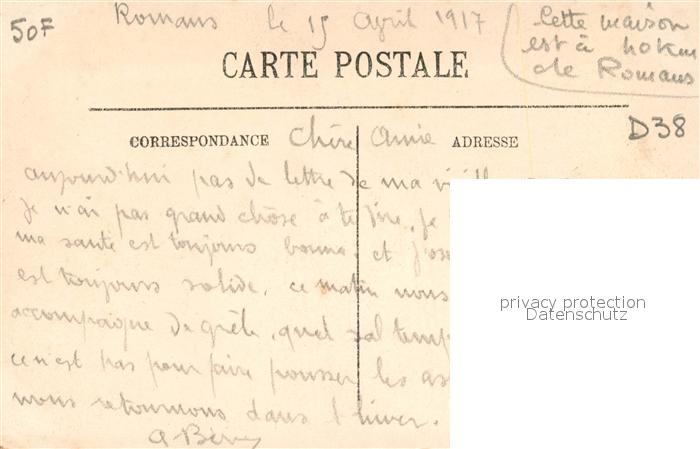 50F
Romans le 15 Avril 1917
Cette maison
est à
de Romans
CARTE POSTALE
D38
CORRESPONDANCE
ADRESSE
Chère Amie
aujourd'hui pas de lettre de ma
Je n'ai pas grand chose à te dire. Je
ma santé est toujours bonne. et
est toujours solide. ce matin nous
accompagné de grêle. quel sal temp
ce n'est pas pour faire pousser les
nous retournons dans l'hiver.
privacy protection
Datenschutz